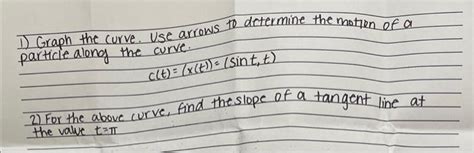 1) Graph the curve. Use arrows to determine the motion of a
particle along the curve.
c(t) = (x(t)) = (sint, t)
2) For the above curve, find the slope of a tangent line at
the value t=π